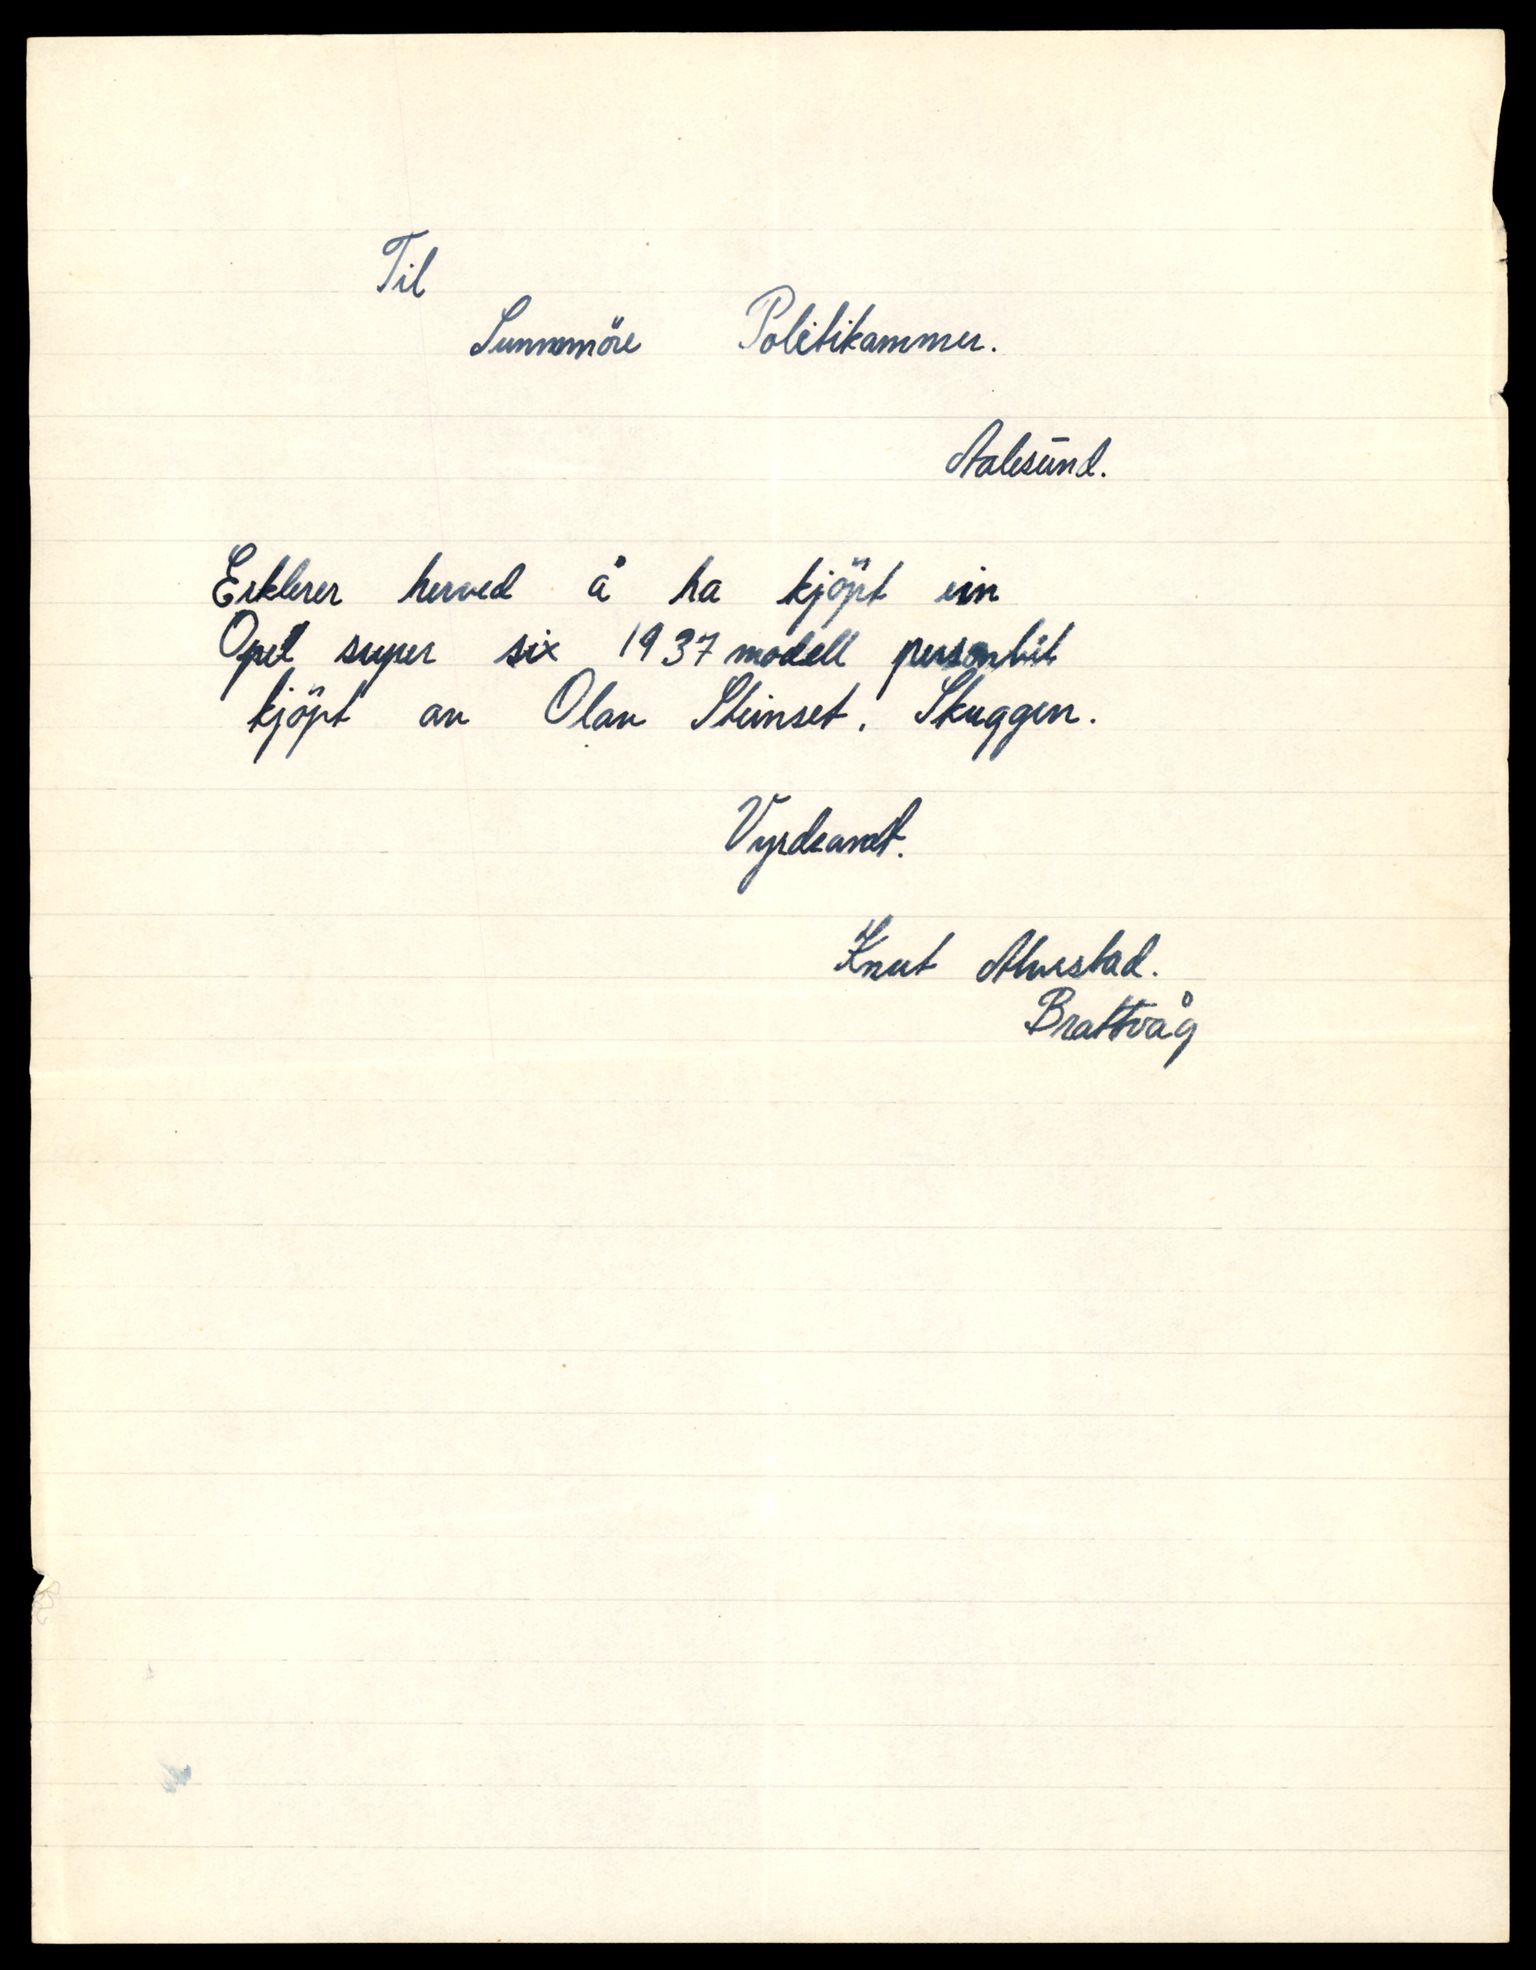 Til
Sunnmöre Politikammer.
Aalesund.
Erklerer herved å ha kjöpt ein
Opel super six 1937 modell personbil
kjöpt av Olav Steinset. Skuggen.
Vyrdsamt.
Knut Alvestad.
Brattvåg